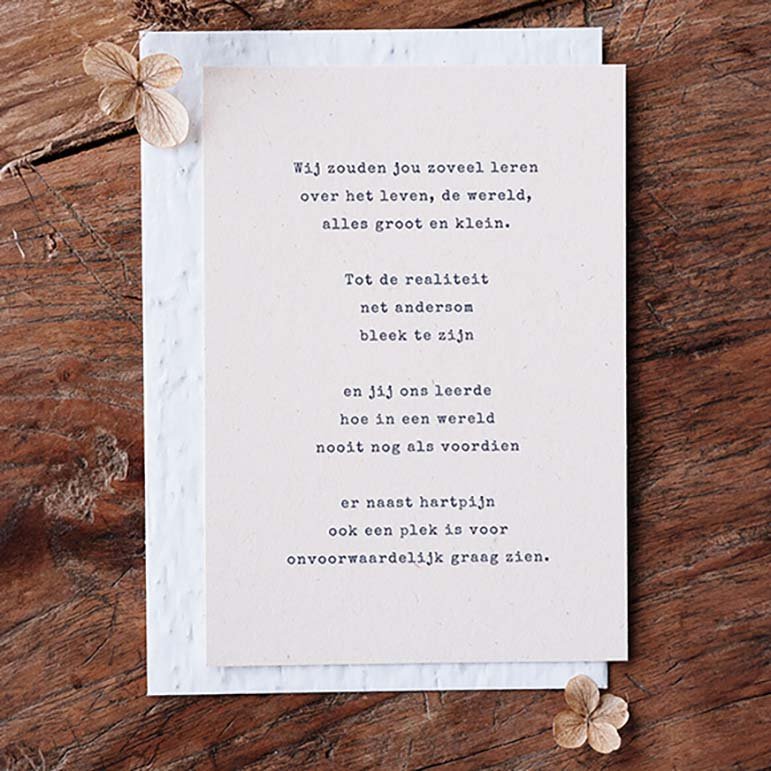 Wij zouden jou zoveel leren
over het leven, de wereld,
alles groot en klein.
Tot de realiteit
net andersom
bleek te zijn
en jij ons leerde
hoe in een wereld
nooit nog als voordien
er naast hartpijn
ook een plek is voor
onvoorwaardelijk graag zien.